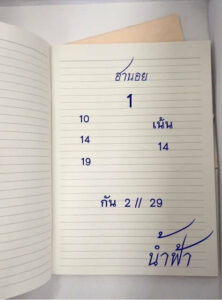 ฮานอย
1
10 เน้น
14 14
19
กัน 2 // 29
น้ำฟ้า